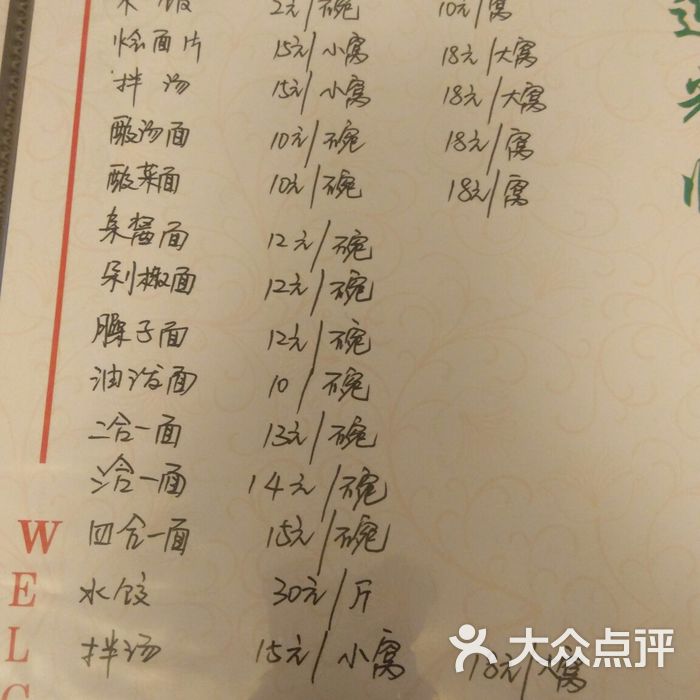 米饭 2元/碗 10元/窝
烩面片 15元/小窝 18元/大窝
拌汤 15元/小窝 18元/大窝
酸汤面 10元/碗 18元/窝
酸菜面 10元/碗 18元/窝
杂酱面 12元/碗
剁椒面 12元/碗
臊子面 12元/碗
油泼面 10/碗
二合一面 13元/碗
三合一面 14元/碗
四合一面 15元/碗
水饺 30元/斤
拌汤 15元/小窝 18元/大窝
WELC
大众点评